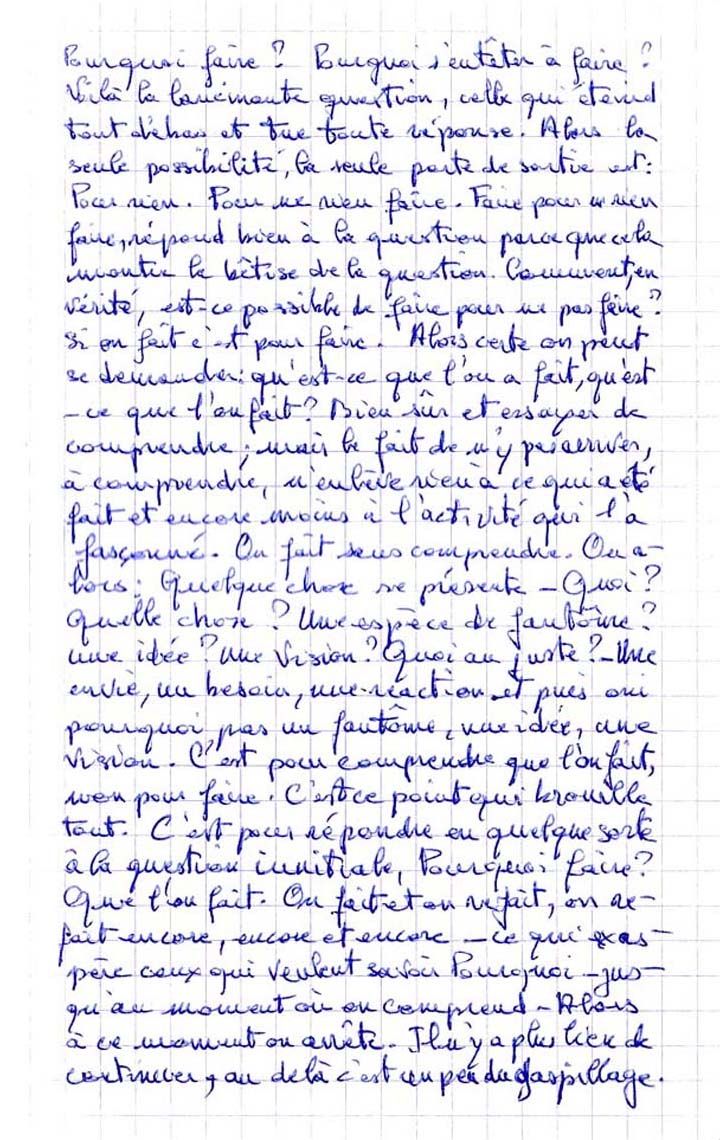 Pourquoi faire ? Pourquoi s'entêter à faire ?
Voilà la lancinante question, celle qui étend
tout débas et tue toute réponse. Alors la
seule possibilité, la seule porte de sortie est :
Pour rien. Pour ne rien faire. Faire pour ne rien
faire, répond bien à la question parce que cela
montre la bêtise de la question. Comment, en
vérité, est-ce possible de faire pour ne pas faire ?
Si on fait c'est pour faire. Alors certe on peut
se demander : qu'est-ce que l'on a fait, qu'est
-ce que l'on fait ? Bien sûr et essayer de
comprendre ; mais le fait de n'y pas arriver,
à comprendre, n'enlève rien à ce qui a été
fait et encore moins à l'activité qui l'a
fasçonné. On fait sans comprendre. On a-
lors : Quelque chose se présente - Quoi ?
Quelle chose ? Une espèce de fantôme ?
une idée ? Une vision ? Quoi au juste ? - Une
envie, un besoin, une réaction et puis oui
pourquoi pas un fantôme, une idée, une
vision. C'est pour comprendre que l'on fait,
non pour faire. C'est ce point qui brouille
tout. C'est pour répondre en quelque sorte
à la question innitiale, Pourquoi faire ?
Que l'on fait. On fait et on refait, on re-
fait encore, encore et encore - ce qui exas-
père ceux qui veulent savoir Pourquoi - jus-
qu'au moment où on comprend - Alors
à ce moment on arrête. Il n'y a plus lieu de
continuer, au delà c'est un peu du gaspillage.